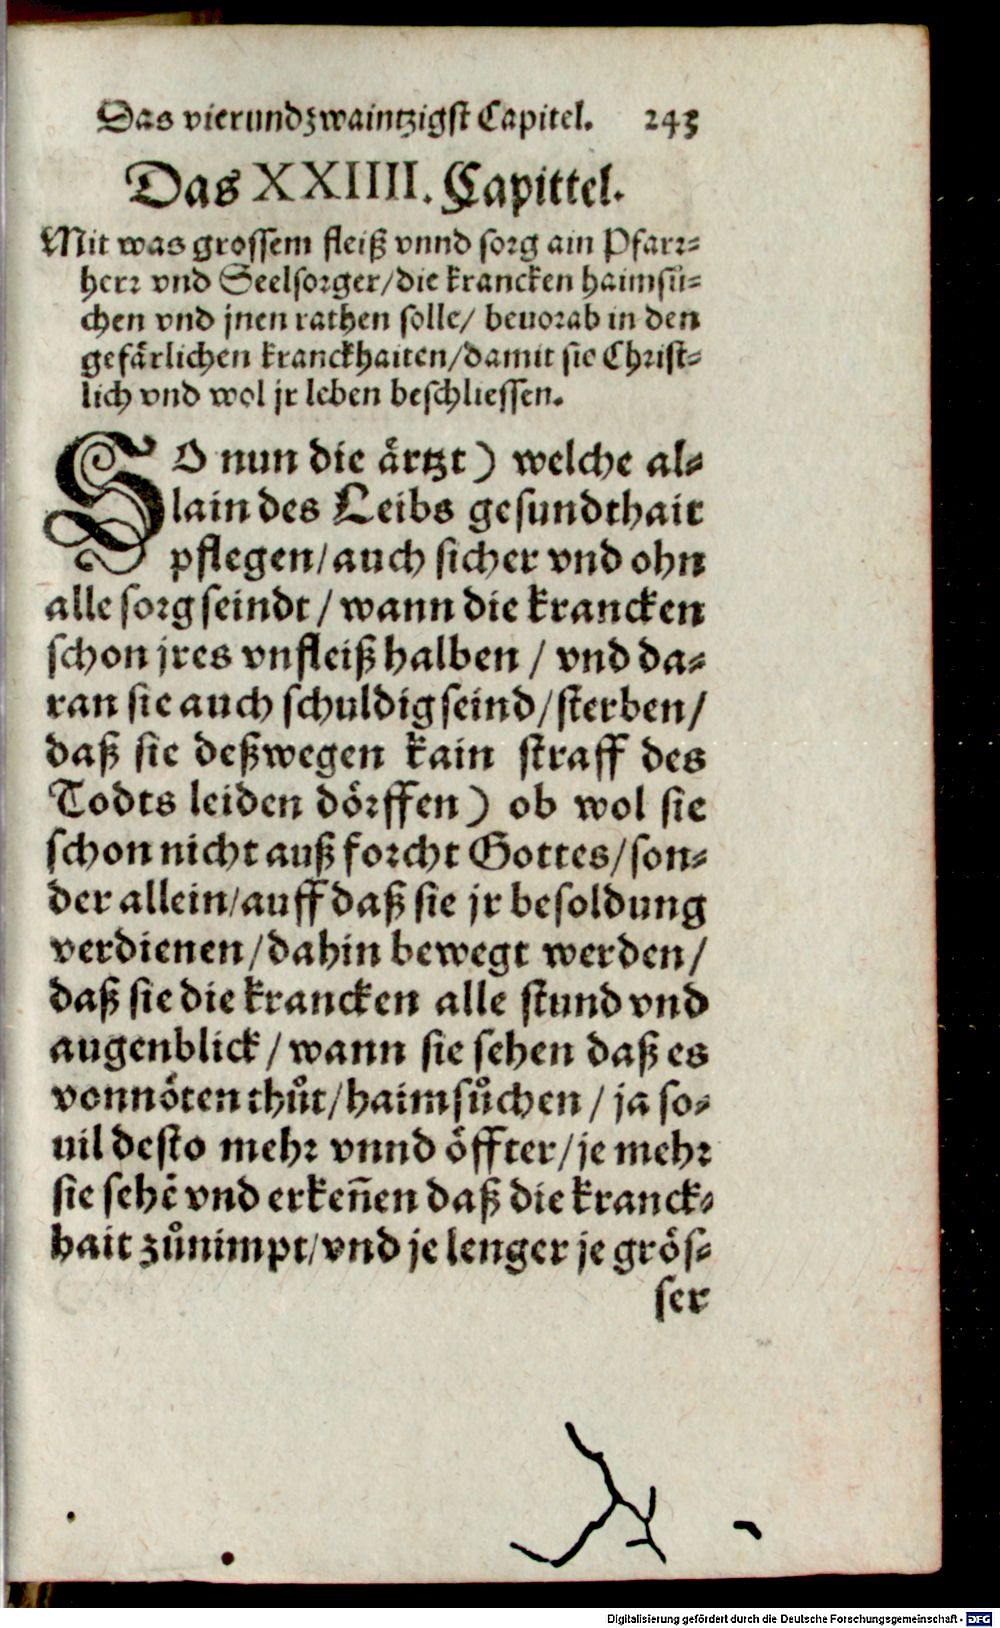 Das vierundzwaintzigst Capitel. 243
Das XXIIII. Capittel.
Mit was grossem fleiß vnnd sorg ain Pfarr-
herr vnd Seelsorger/die krancken haimsů-
chen vnd jnen rathen solle/ beuorab in den
gefärlichen kranckhaiten/damit sie Christ-
lich vnd wol jr leben beschliessen.
SO nun die ärtzt) welche al-
lain des Leibs gesundthait
pflegen/auch sicher vnd ohn
alle sorg seindt / wann die krancken
schon jres vnfleiß halben / vnd da-
ran sie auch schuldig seind/sterben/
daß sie deßwegen kain straff des
Todts leiden dörffen) ob wol sie
schon nicht auß forcht Gottes/son-
der allein/auff daß sie jr besoldung
verdienen/dahin bewegt werden/
daß sie die krancken alle stund vnd
augenblick / wann sie sehen daß es
vonnöten thůt/haimsůchen / ja so-
uil desto mehr vnnd öffter/je mehr
sie sehē vnd erkeñen daß die kranck-
hait zůnimpt/vnd je lenger je grös-
ser
Digitalisierung gefördert durch die Deutsche Forschungsgemeinschaft - DFG